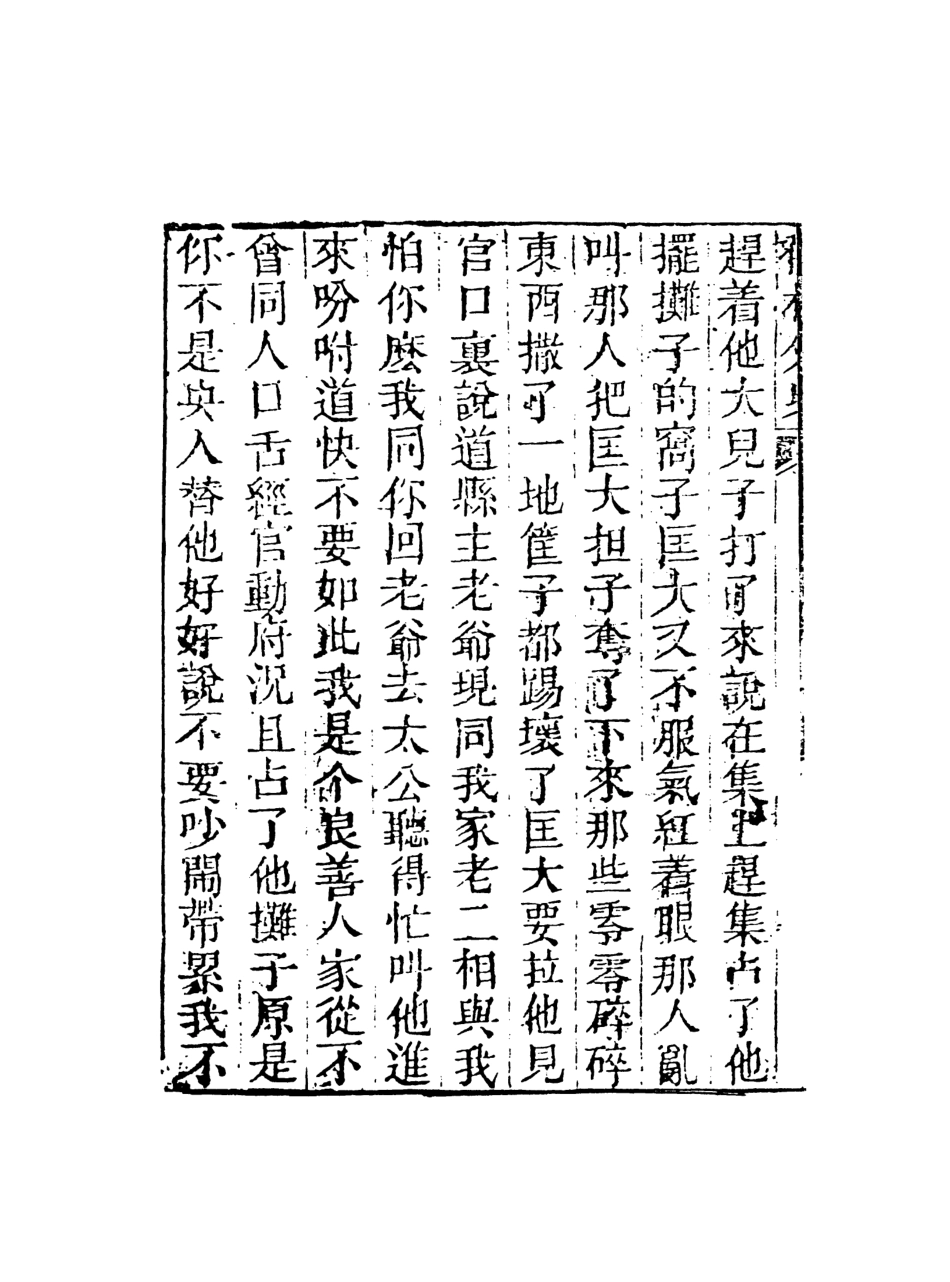 趕着他大兒子打了來說在集上趕集占了他
擺攤子的窩子匡大又不服氣紅着眼那人亂
叫那人把匡大担子奪了下來那些零零碎碎
東西撒了一地筐子都踢壞了匡大要拉他見
官口裏說道縣主老爺現同我家老二相與我
怕你麽我同你回老爺去太公聽得忙叫他進
來吩咐道快不要如此我是个良善人家從不
曾同人口舌經官動府況且占了他攤子原是
你不是央人替他好好說不要吵鬧帶累我不